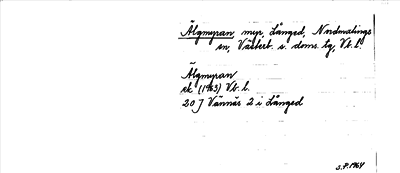 Älgmyran myr, Långed, Nordmalings
sn, Västerb. s. doms. tg, Vb. l.
Älgmyran
ek (1963) Vb. l.
20 J Vännäs 2 i Långed
S.P. 1964